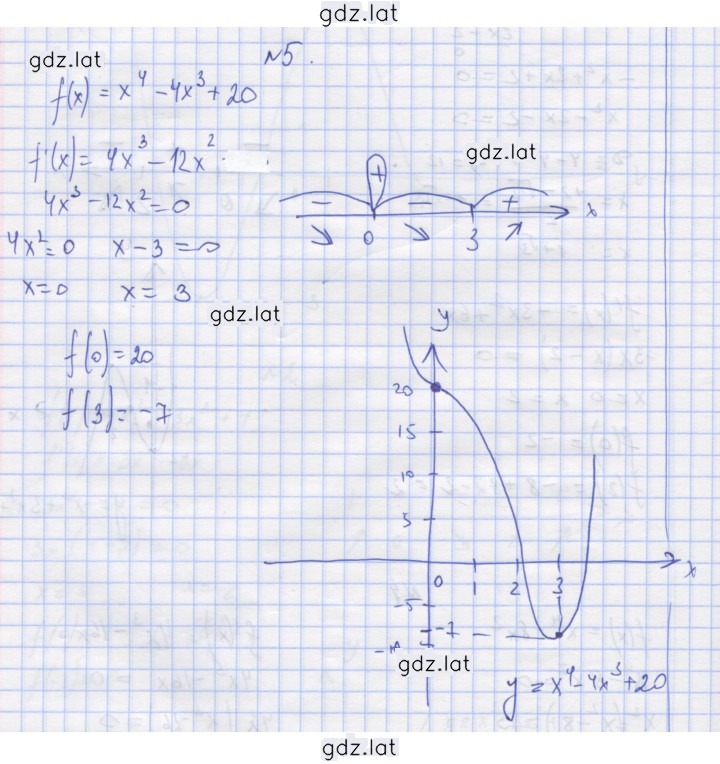 gdz.lat
gdz.lat
№5.
f(x) = x⁴ - 4x³ + 20
f'(x) = 4x³ - 12x²
gdz.lat
4x³ - 12x² = 0
4x² = 0 x - 3 = 0
x = 0 x = 3
- + - +
↘ 0 ↘ 3 ↗ x
gdz.lat
f(0) = 20
f(3) = -7
y
20
15
10
5
0 1 2 3 x
-5
-7
gdz.lat
y = x⁴ - 4x³ + 20
gdz.lat